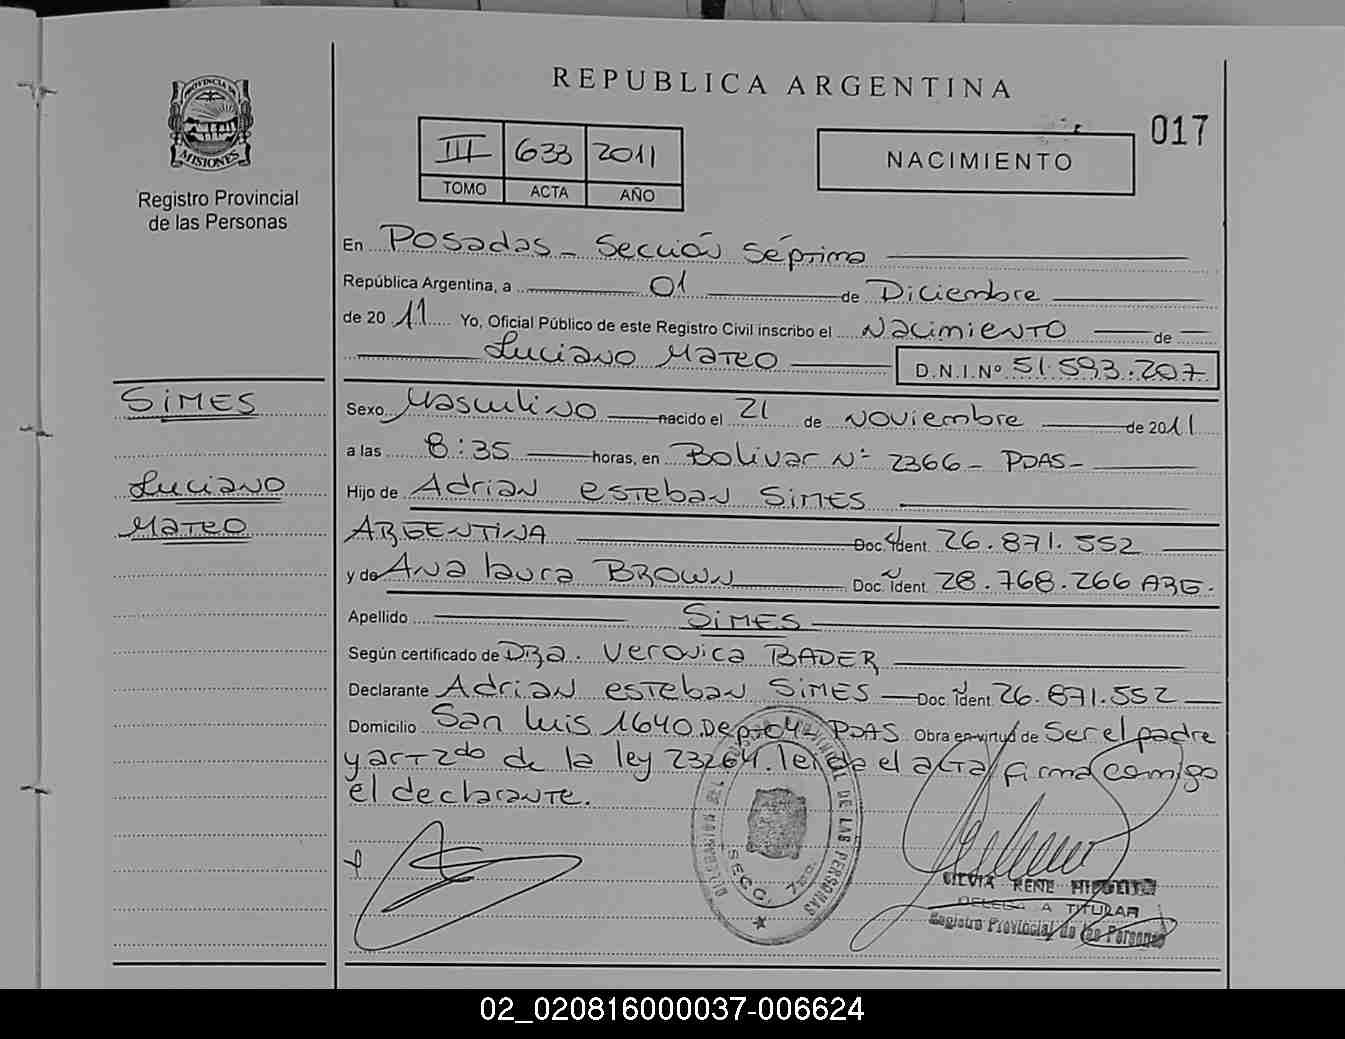 REPUBLICA ARGENTINA
017
PROVINCIA DE
MISIONES
Registro Provincial
de las Personas
III 633 2011
TOMO ACTA AÑO
NACIMIENTO
En Posadas - Sección Séptima
República Argentina, a 01 de Diciembre
de 2011 Yo, Oficial Público de este Registro Civil inscribo el Nacimiento de
Luciano Mateo D.N.I.Nº 51.593.207
SiMES
Luciano
Mateo
Sexo Masculino nacido el 21 de Noviembre de 2011
a las 8:35 horas, en Bolivar Nº 2366 - PDAS -
Hijo de Adrian esteban SiMES
ARGENTINA Doc. Ident. 26.871.552
y de Ana laura BROWN Doc. Ident. 28.768.266 ARG.
Apellido SiMES
Según certificado de DRa. Veronica BADER
Declarante Adrian esteban SiMES Doc. Ident. 26.871.552
Domicilio San luis 1640 Depto 4 - PDAS Obra en virtud de Ser el padre
y art 2do de la ley 23264. leida el acta firma comigo
el declarante.
PROVINCIAL DE LAS PERSONAS
SECC. 7ma.
SILVIA RENE HIPOLITO
DELEGADA TITULAR
Registro Provincial de las Personas
02_020816000037-006624